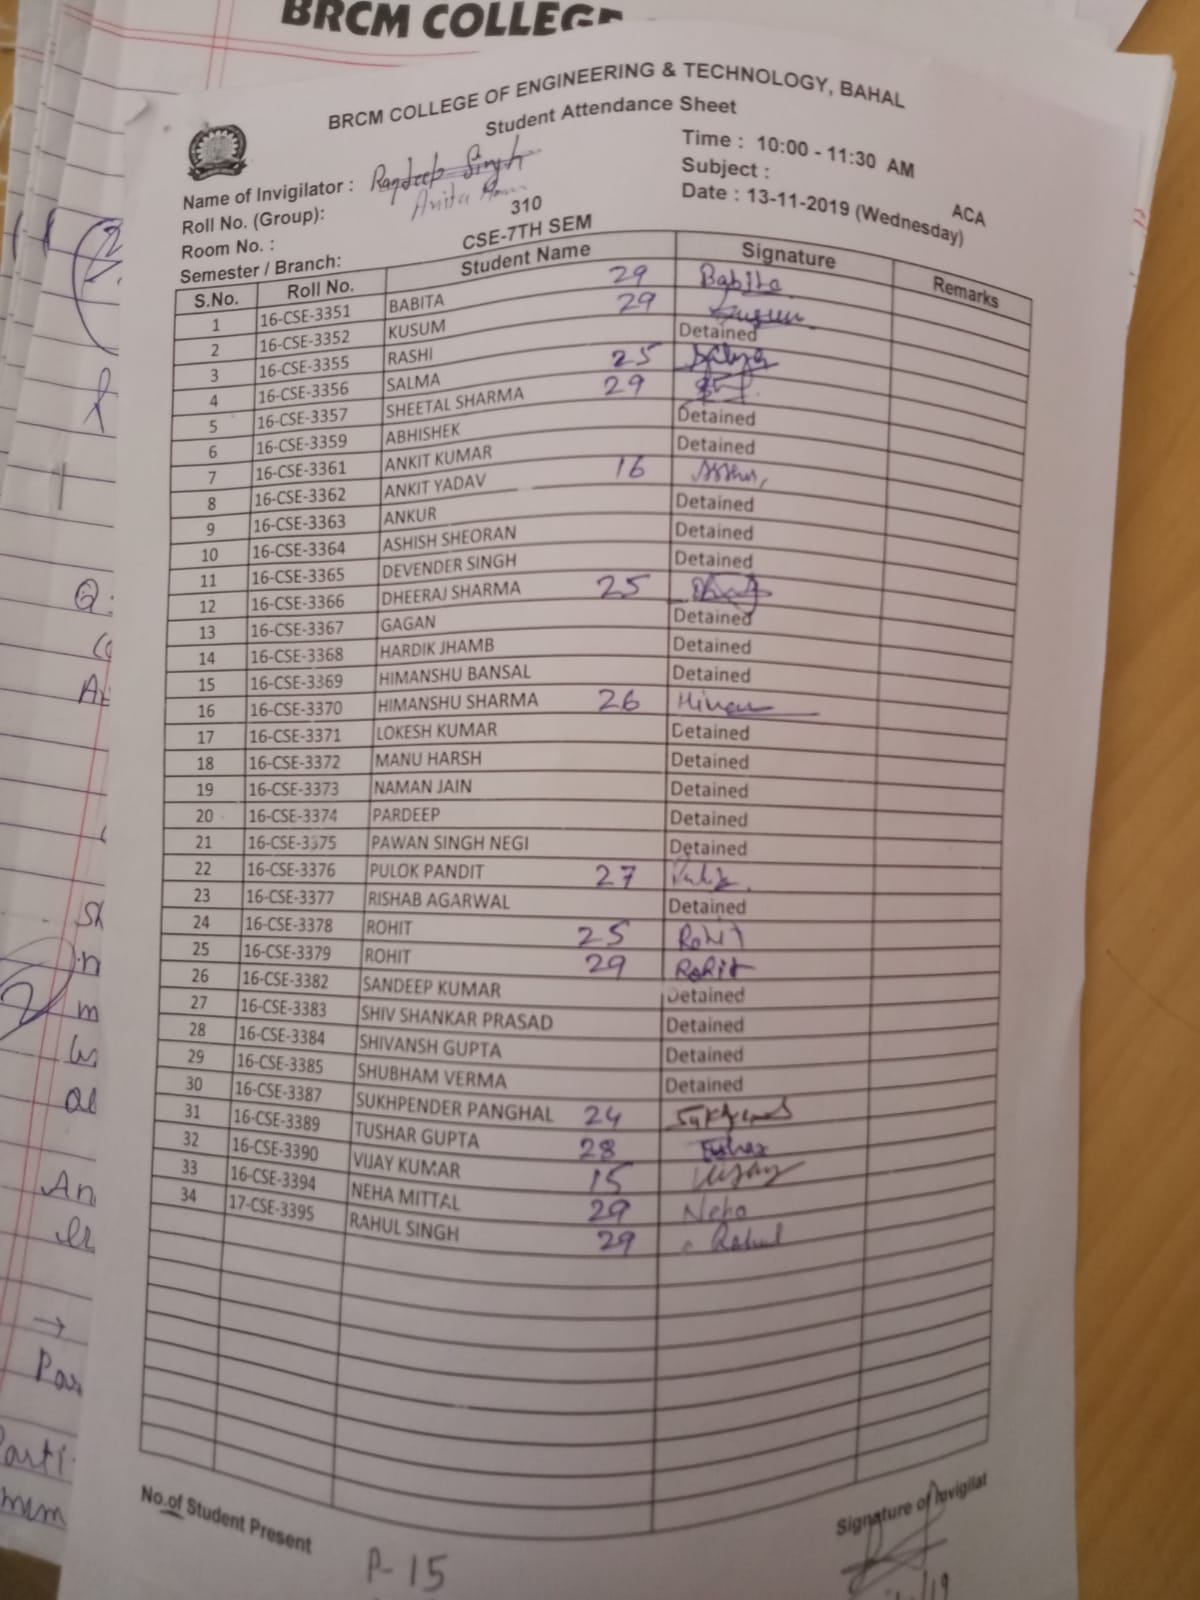 BRCM COLLEGE
BRCM COLLEGE OF ENGINEERING & TECHNOLOGY, BAHAL
Student Attendance Sheet
Name of Invigilator : Randeep Singh
Anita
Time : 10:00 - 11:30 AM
Roll No. (Group):
Subject : ACA
Room No. : 310
Date : 13-11-2019 (Wednesday)
Semester / Branch: CSE-7TH SEM
S.No. Roll No. Student Name Signature Remarks
1 16-CSE-3351 BABITA 29 Babita
2 16-CSE-3352 KUSUM 29 Kusum
3 16-CSE-3355 RASHI Detained
4 16-CSE-3356 SALMA 25 Salma
5 16-CSE-3357 SHEETAL SHARMA 29
6 16-CSE-3359 ABHISHEK Detained
7 16-CSE-3361 ANKIT KUMAR Detained
8 16-CSE-3362 ANKIT YADAV 16
9 16-CSE-3363 ANKUR Detained
10 16-CSE-3364 ASHISH SHEORAN Detained
11 16-CSE-3365 DEVENDER SINGH Detained
12 16-CSE-3366 DHEERAJ SHARMA 25
13 16-CSE-3367 GAGAN Detained
14 16-CSE-3368 HARDIK JHAMB Detained
15 16-CSE-3369 HIMANSHU BANSAL Detained
16 16-CSE-3370 HIMANSHU SHARMA 26
17 16-CSE-3371 LOKESH KUMAR Detained
18 16-CSE-3372 MANU HARSH Detained
19 16-CSE-3373 NAMAN JAIN Detained
20 16-CSE-3374 PARDEEP Detained
21 16-CSE-3375 PAWAN SINGH NEGI Detained
22 16-CSE-3376 PULOK PANDIT 27
23 16-CSE-3377 RISHAB AGARWAL Detained
24 16-CSE-3378 ROHIT 25 Rohit
25 16-CSE-3379 ROHIT 29 Rohit
26 16-CSE-3382 SANDEEP KUMAR Detained
27 16-CSE-3383 SHIV SHANKAR PRASAD Detained
28 16-CSE-3384 SHIVANSH GUPTA Detained
29 16-CSE-3385 SHUBHAM VERMA Detained
30 16-CSE-3387 SUKHPENDER PANGHAL 24
31 16-CSE-3389 TUSHAR GUPTA 28 Tushar
32 16-CSE-3390 VIJAY KUMAR 15 Vijay
33 16-CSE-3394 NEHA MITTAL 29 Neha
34 17-CSE-3395 RAHUL SINGH 29 Rahul
No.of Student Present
P-15
Signature of Invigilat